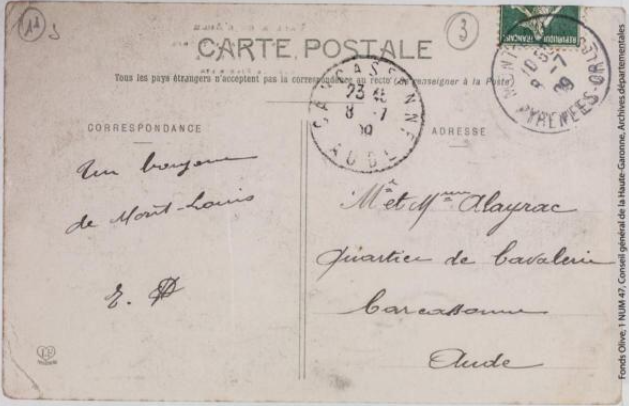 11
3
CARTE POSTALE
Tous les pays étrangers n'acceptent pas la correspondance au recto (Se renseigner à la Poste)
RÉPUBLIQUE FRANÇAISE
PYRÉNÉES-ORLES
8 -7
09
CARCASSONNE
23
8 -7
09
AUDE
CORRESPONDANCE
ADRESSE
Un bonjour
de Mont-Louis
E.
Mr et Mme Alayrac
Quartier de Cavalerie
Carcassonne
Aude
Fonds Olive, 1 NUM 47, Conseil général de la Haute-Garonne, Archives départementales